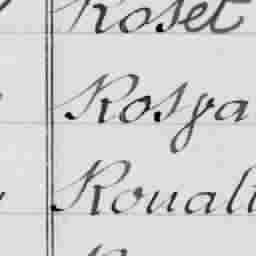 Roset
Rosya
Roualt